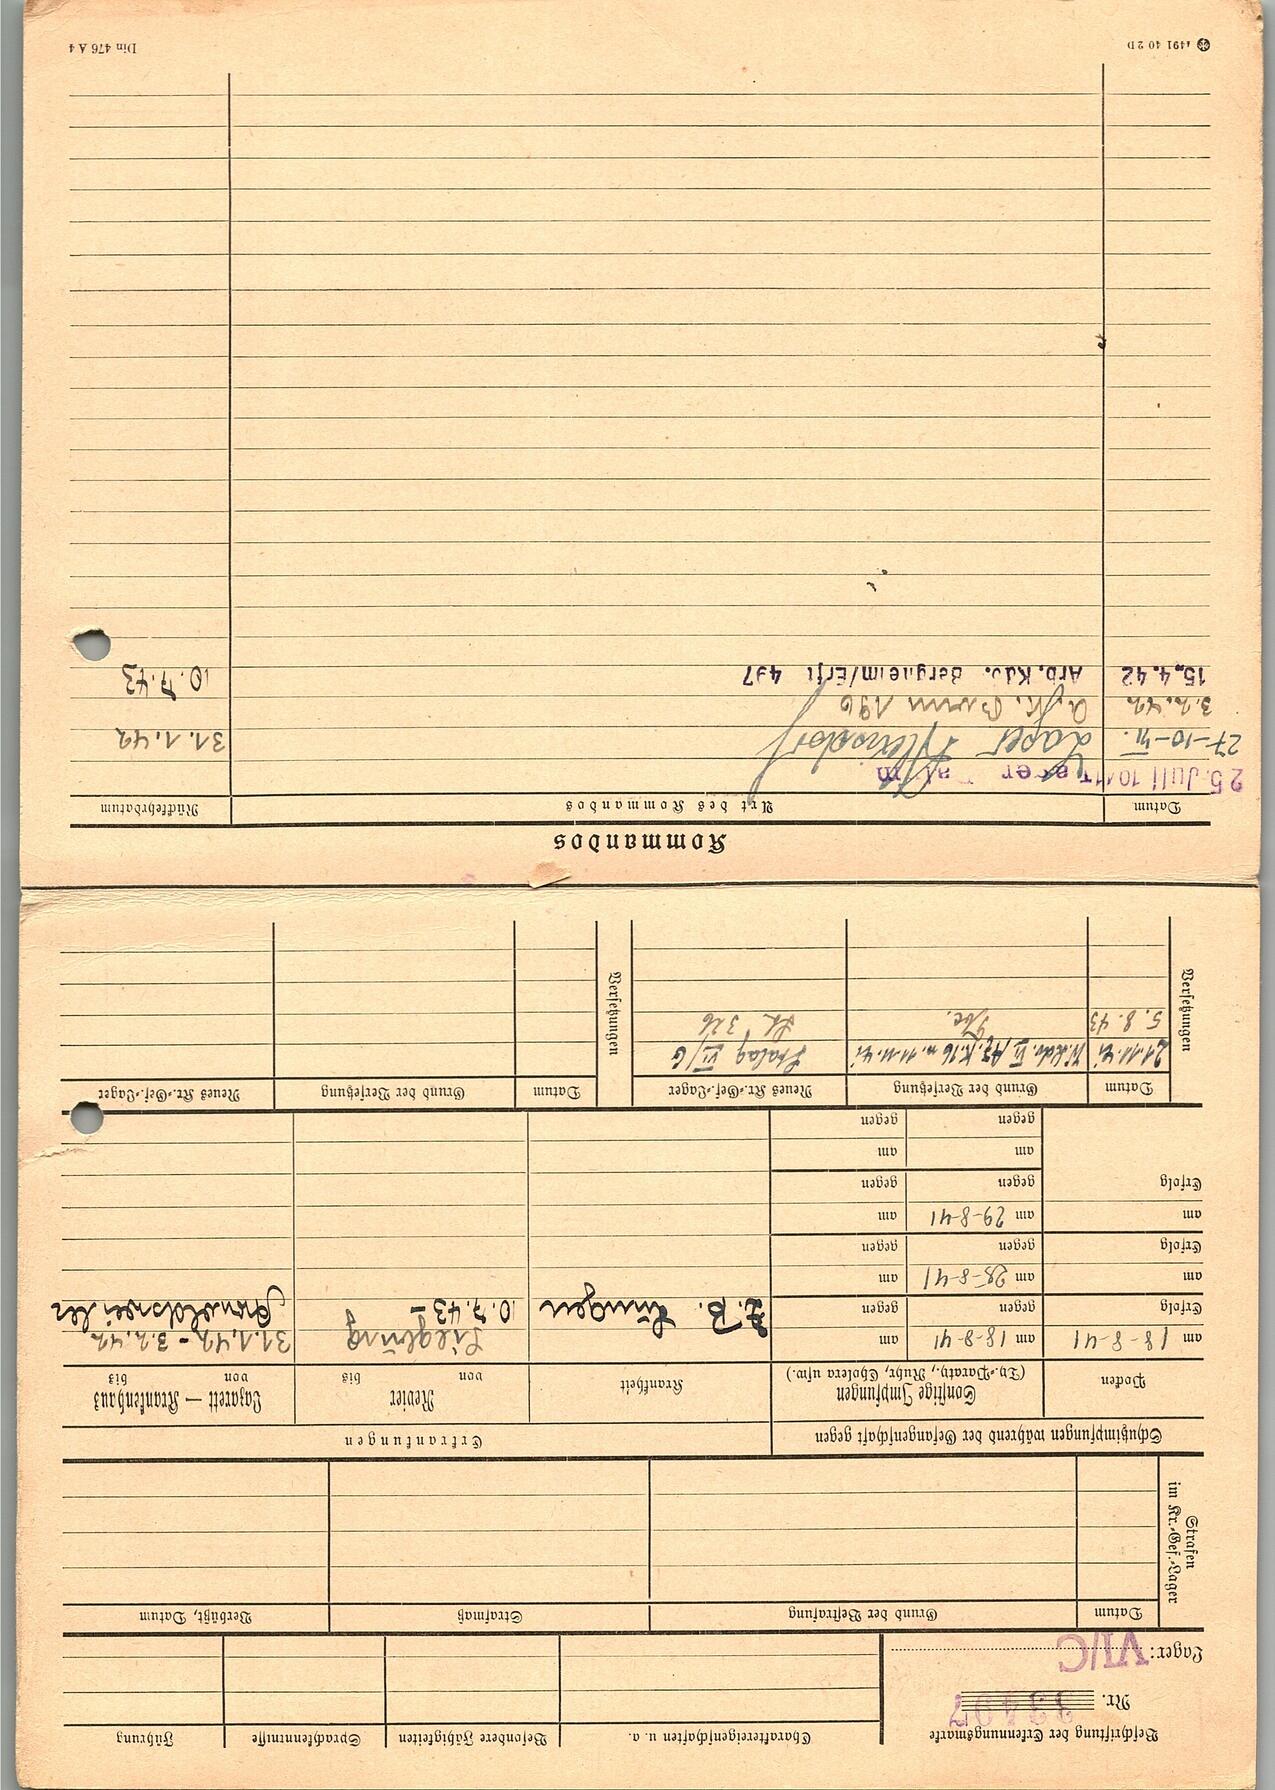 Beschriftung der Erkennungsmarke
Nr. 33497
Lager: VI/C
Charaktereigenschaften u. a.
Besondere Fähigkeiten
Sprachkenntnisse
Führung
Strafen im Kr.-Gef.-Lager
Datum
Grund der Bestrafung
Strafmaß
Verbüßt, Datum
Schutzimpfungen während der Gefangenschaft gegen
Erkrankungen
Pocken
Sonstige Impfungen
(Ty.-Paraty., Ruhr, Cholera usw.)
Krankheit
Revier
von bis
Lazarett — Krankenhaus
von bis
am 18-8-41
am 18-8-41
am
31.1.42 - 3.2.42
Erfolg
gegen
gegen
Z. B. Lungen
10.7.43 -
Arnoldsweiler
am 25-8-41
am
Erfolg
gegen
gegen
am
am 29-8-41
am
Erfolg
gegen
gegen
am
am
gegen
gegen
Versetzungen
Datum
Grund der Versetzung
Neues Kr.-Gef.-Lager
Versetzungen
Datum
Grund der Versetzung
Neues Kr.-Gef.-Lager
21.11.41
W.kdo. VI Az. K. 16 11.11.41
Stalag VI/G
5.8.43
326
Kommandos
Datum
Art des Kommandos
Rückkehrdatum
25. Juli
27-10-41
Lager
31.1.42
3.2.42
196
15.4.42
Arb.Kdo. Bergheim/Erft 497
10.7.43
1491 40 2D
Din 476 A 4